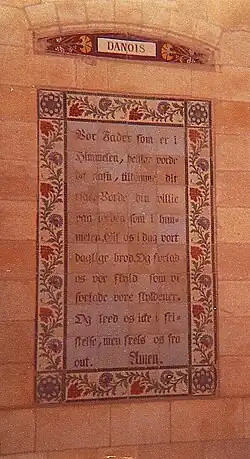 DANOIS
Vor Fader som er i
Himmelen, vorde
dit navn, dit
rige. Vorde din villie
som i him-
melen. Gif os i dag vort
daglige brod. Og forlad
os vor skyld som vi
forlade vore skyldener.
Og leed os icke i fri-
stelse, men frels os fra
ont. Amen.